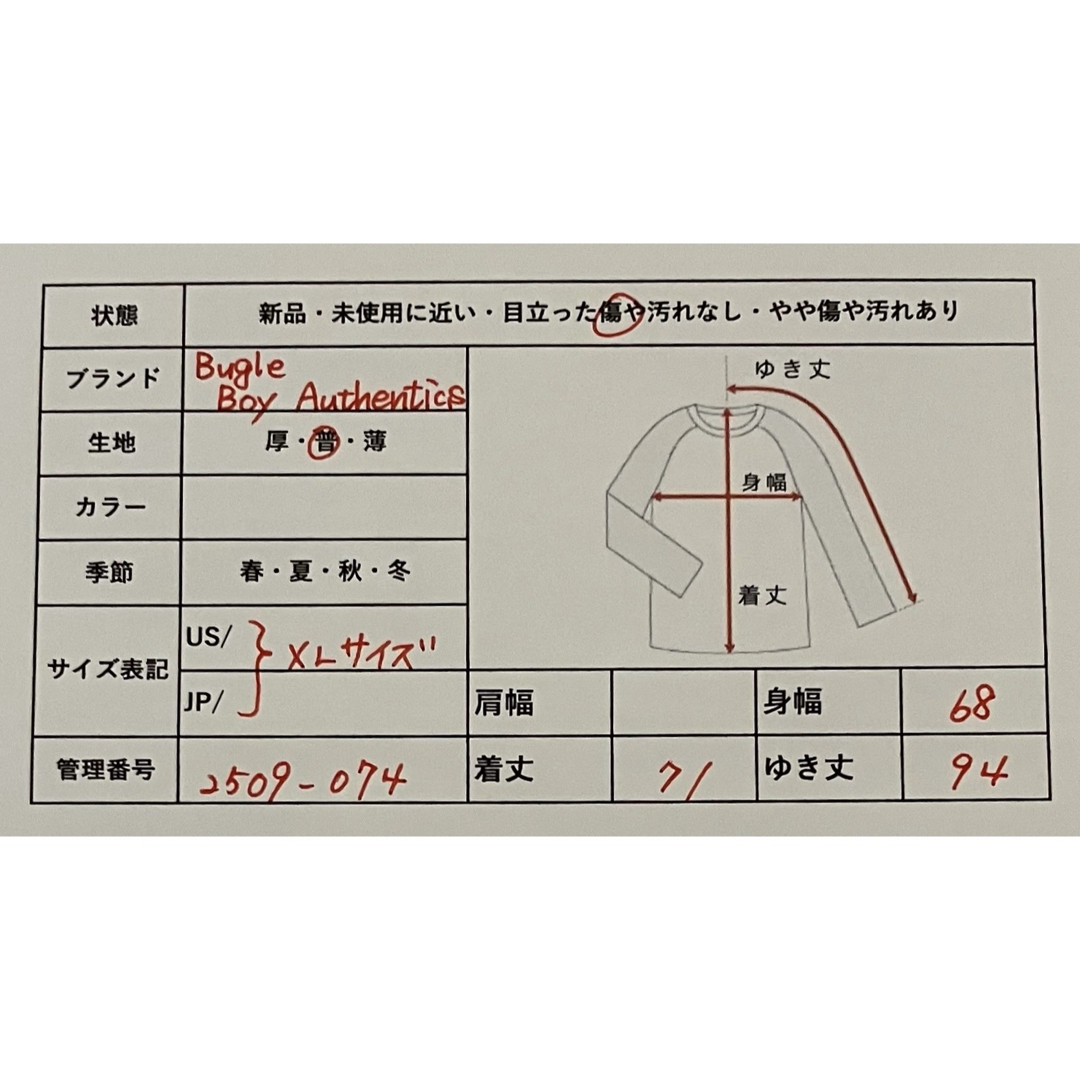 状態
新品・未使用に近い・目立った傷や汚れなし・やや傷や汚れあり
ブランド
Bugle
Boy Authentics
生地
厚・普・薄
カラー
季節
春・夏・秋・冬
サイズ表記
US/
JP/
XLサイズ
管理番号
2509-074
ゆき丈
身幅
着丈
肩幅
身幅
68
着丈
71
ゆき丈
94